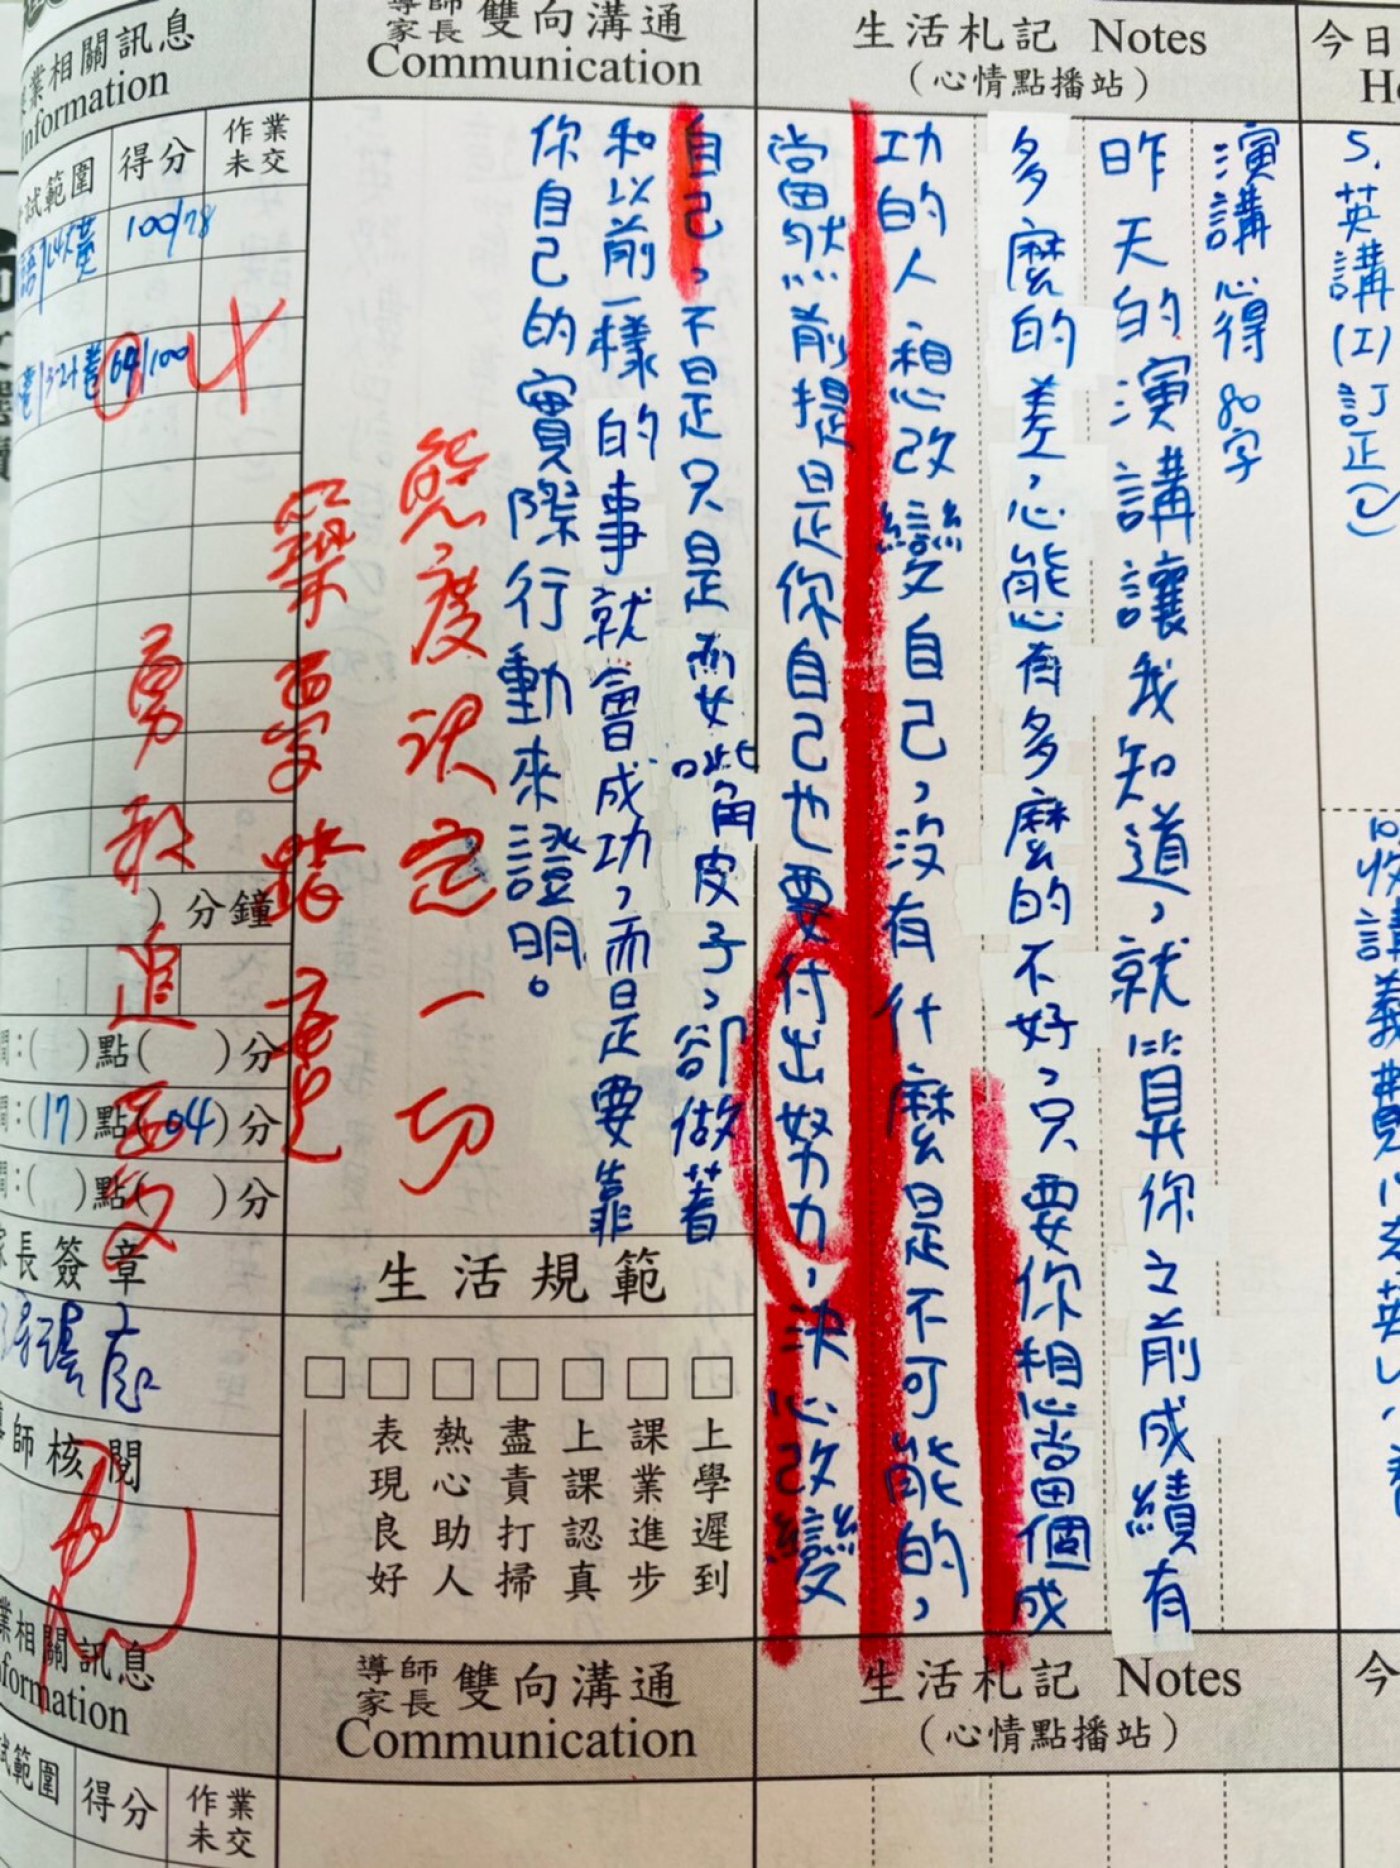 導師家長 雙向溝通
Communication
生活札記 Notes
（心情點播站）
今日
業相關訊息
Information
試範圍
得分
作業未交
100/78
64/100
5.英講(I)訂正
演講心得80字
昨天的演講讓我知道，就算你之前成績有
多麼的差，心態有多麼的不好，只要你相心當個成
功的人想改變自己，沒有什麼是不可能的，
當然前提是你自己也要付出努力，決心改變
自己，不是只是耍嘴皮子，卻做著
和以前一樣的事就會成功，而是要靠
你自己的實際行動來證明。
態度決定一切
築夢踏實
勇敢追
)分鐘
間:( )點( )分
間:(17)點(04)分
間:( )點( )分
家長簽章
導師核閱
生活規範
□上學遲到
□課業進步
□上課認真
□盡責打掃
□熱心助人
□表現良好
□
業相關訊息
nformation
導師家長 雙向溝通
Communication
生活札記 Notes
（心情點播站）
今
試範圍
得分
作業未交